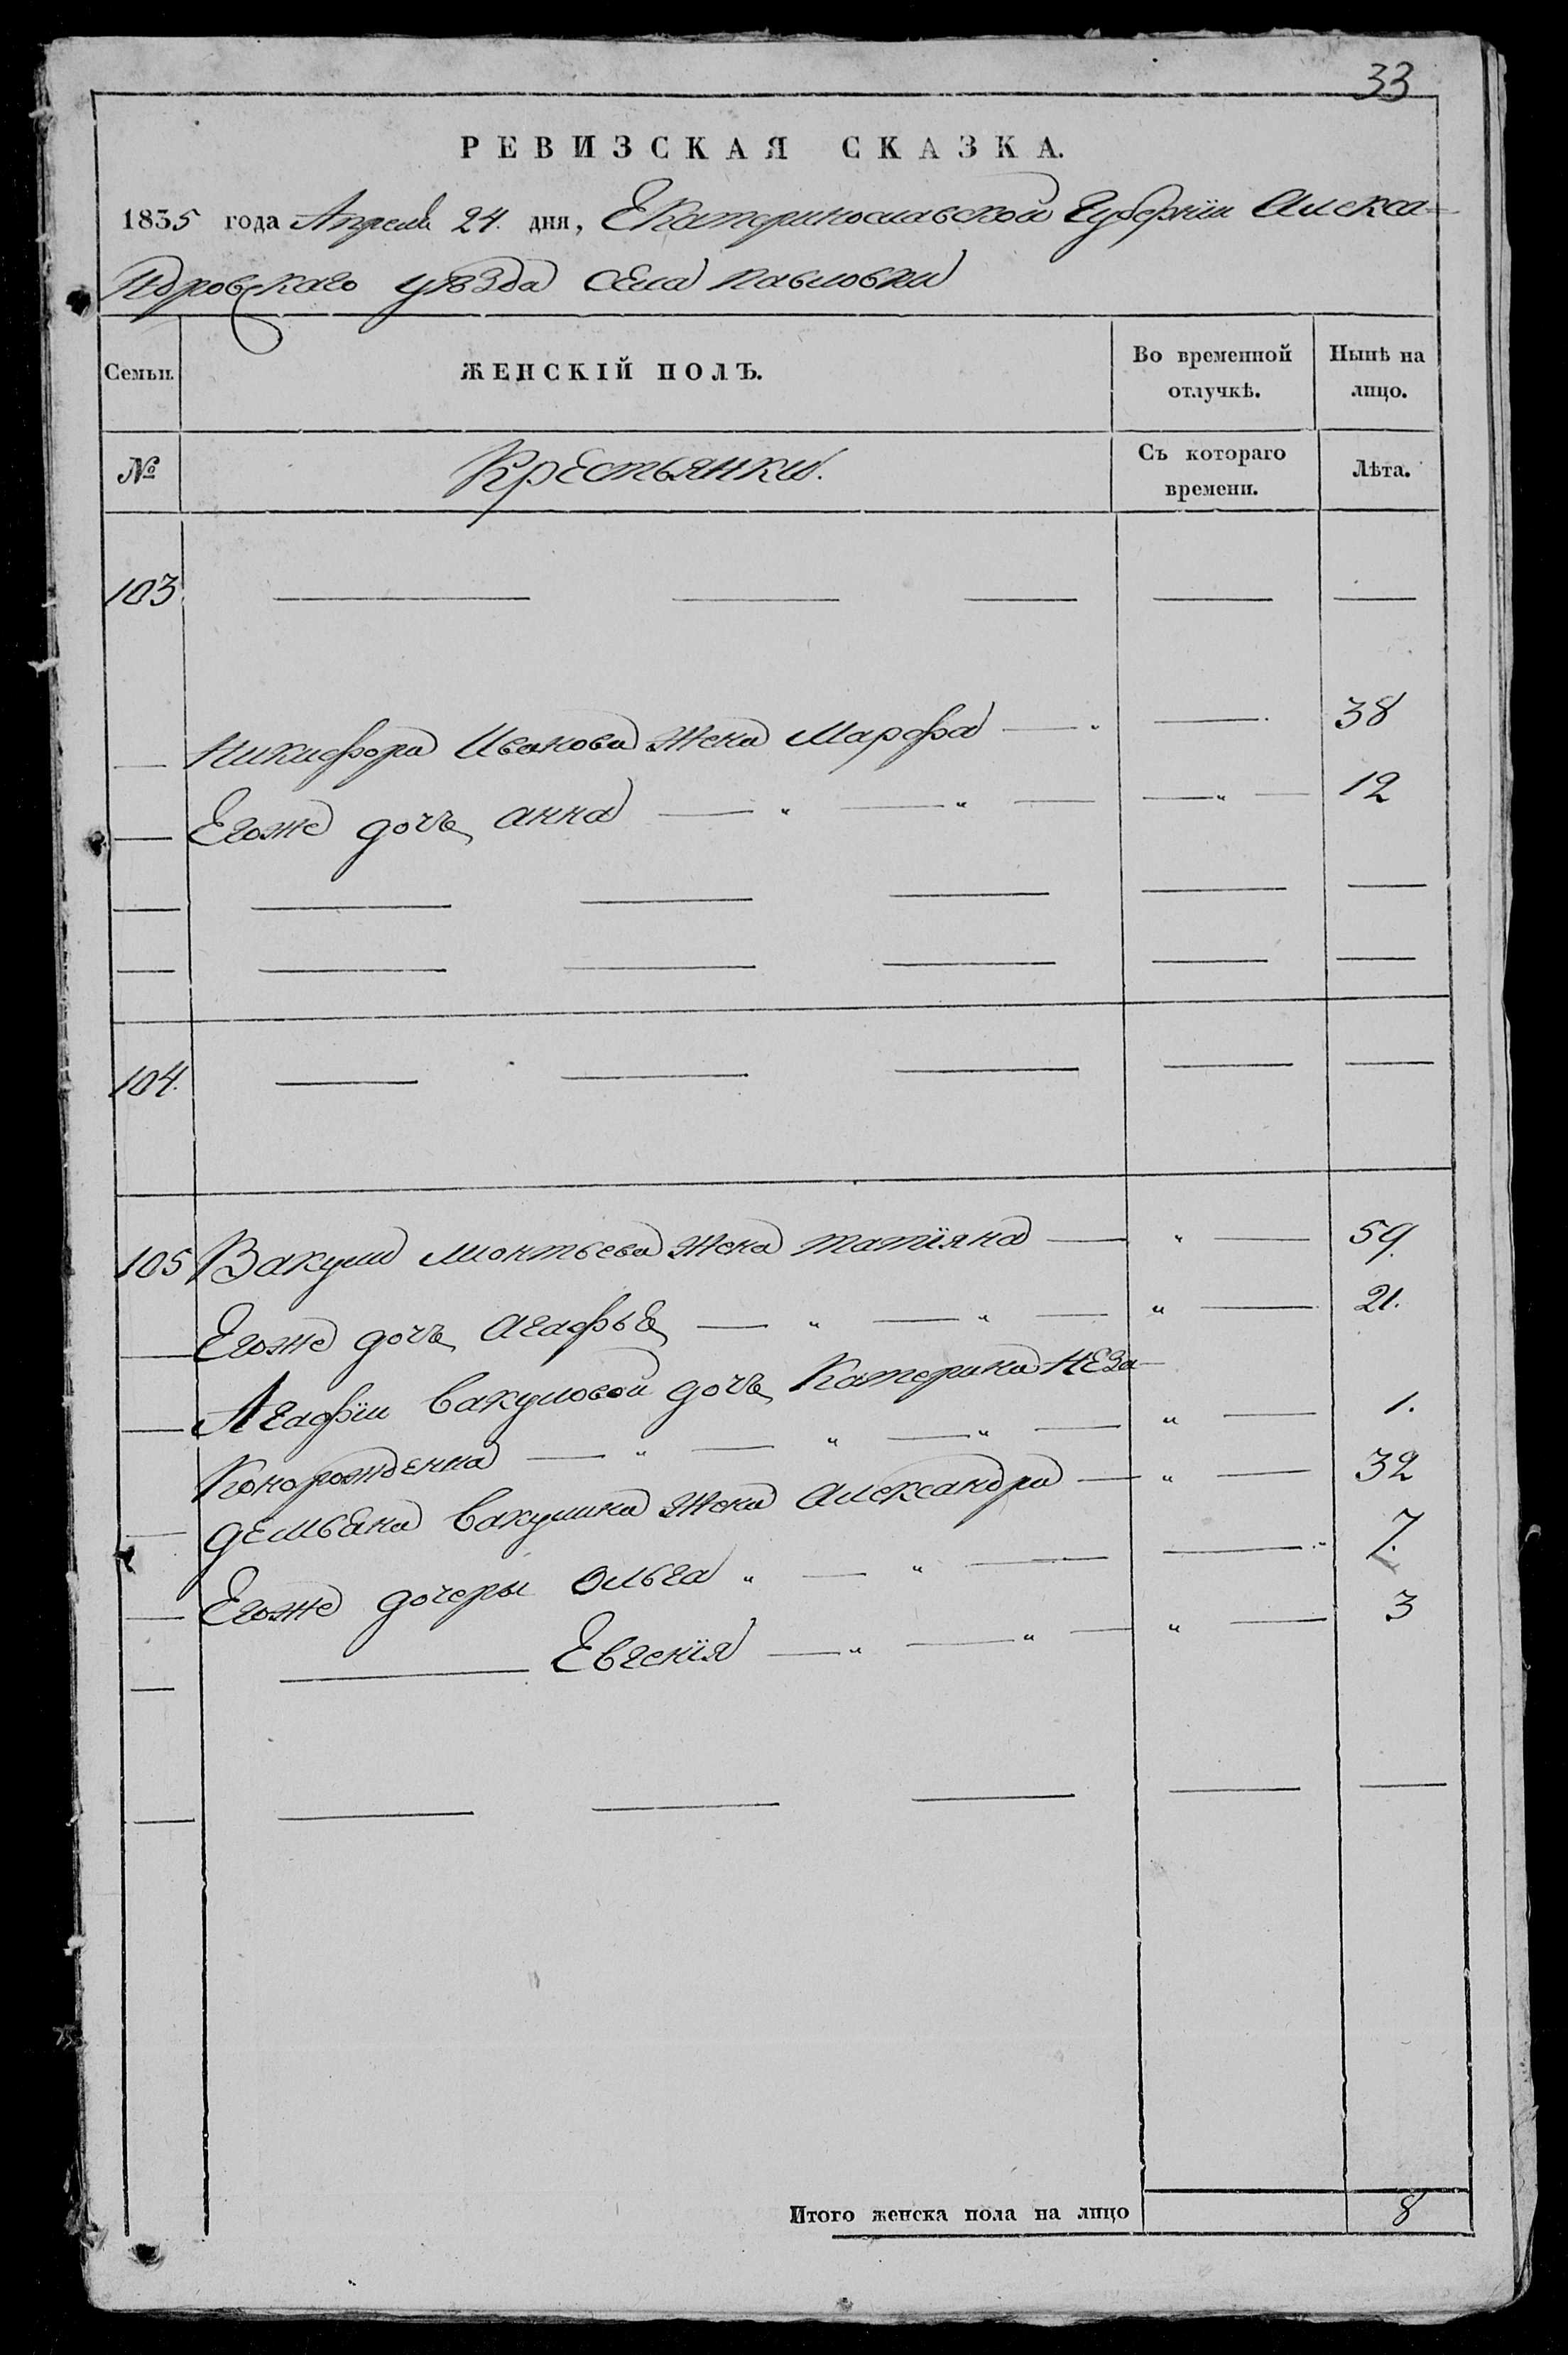 33
РЕВИЗСКАЯ СКАЗКА.
1835 года Апреля 24. дня, Екатеринославской Губернїи Алекса-
ндровскаго уѣзда Села павловки
Семьи. ЖЕНСКІЙ ПОЛЪ. Во временной отлучкѣ. Нынѣ на лицо.
№ Крестьянки. Съ котораго времени. Лѣта.
103
Никифора Иванова жена Марфа 38
Егоже дочь анна 12
104.
105 Вакулы леонтьева жена татїяна 59.
Егоже дочь агафья 21.
Агафїи вакуловой дочь Катерина неза-
конорожденна 1.
демьяна вакулина жена александра 32
Егоже дочеры ольга 7.
Евгенїя 3
Итого женска пола на лицо 8